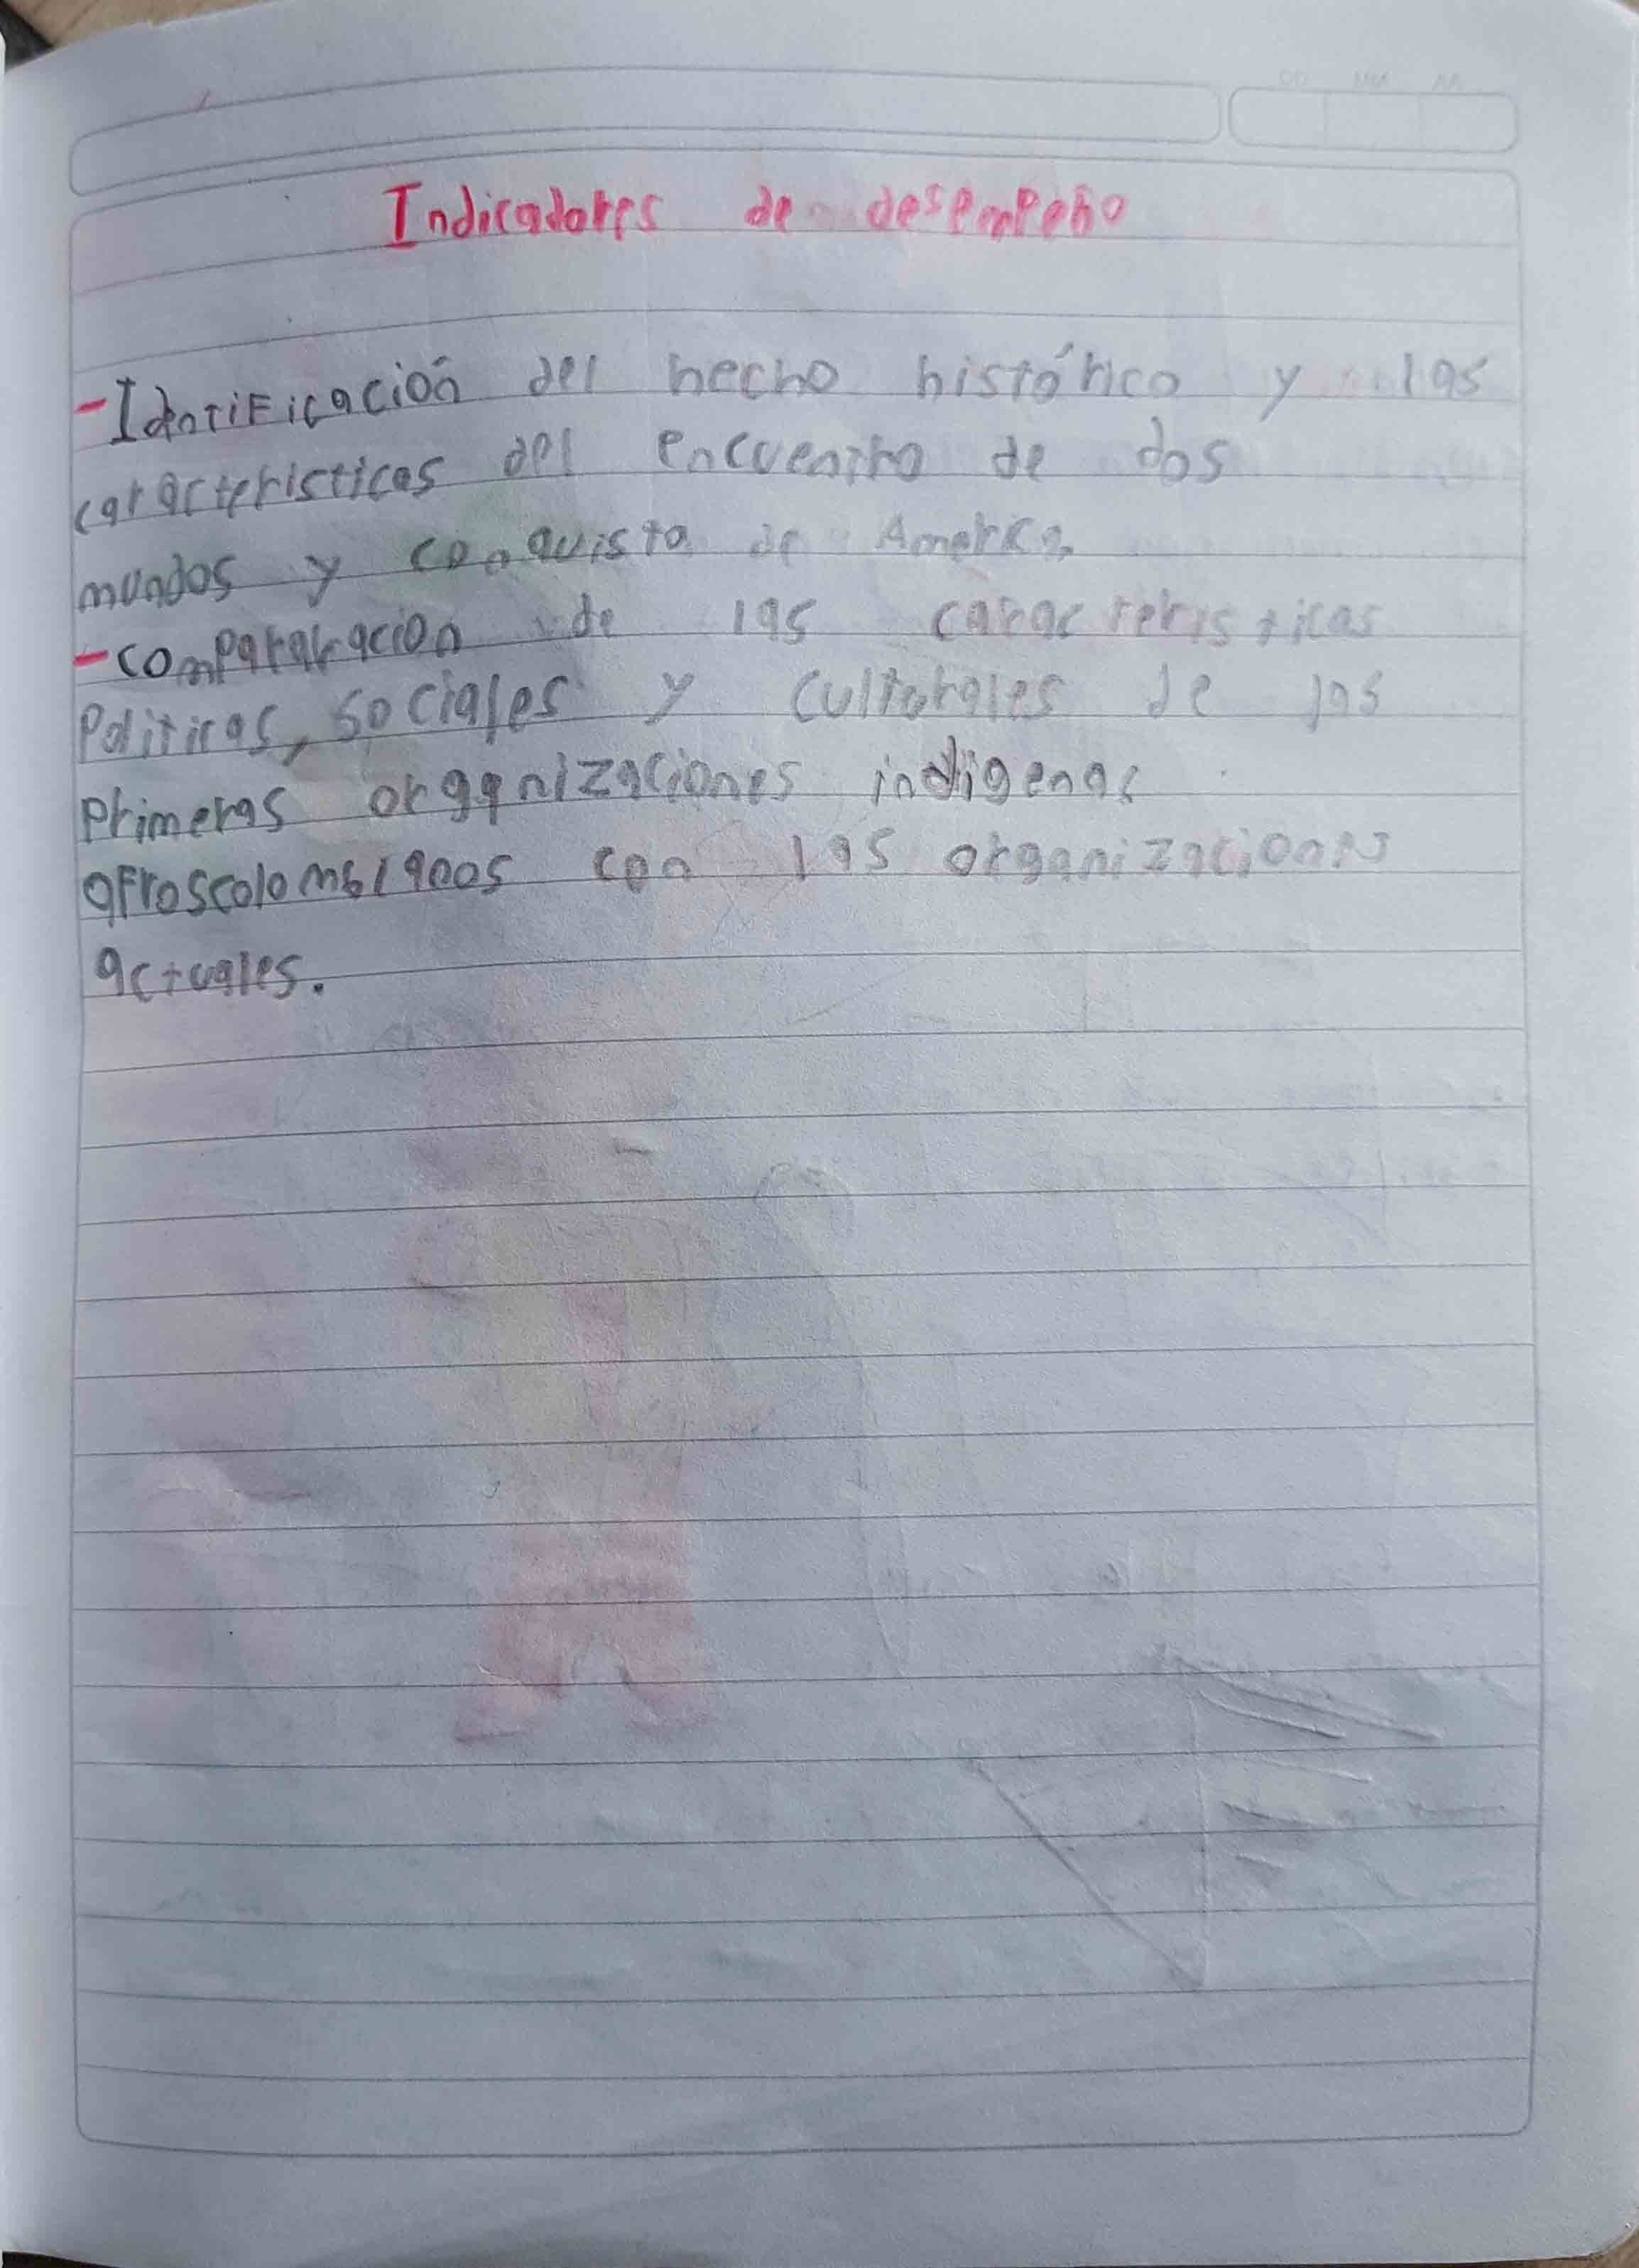 DD MM AA
Indicadores de desempeño
-Idntificación del hecho histórico y las
caracteristicas del encuentro de dos
mundos y conquista de America.
-compararacion de las caracteristicas
Politicas, sociales y culturales de las
primeras organizaciones indigenas
afroscolombianos con las organizaciones
actuales.